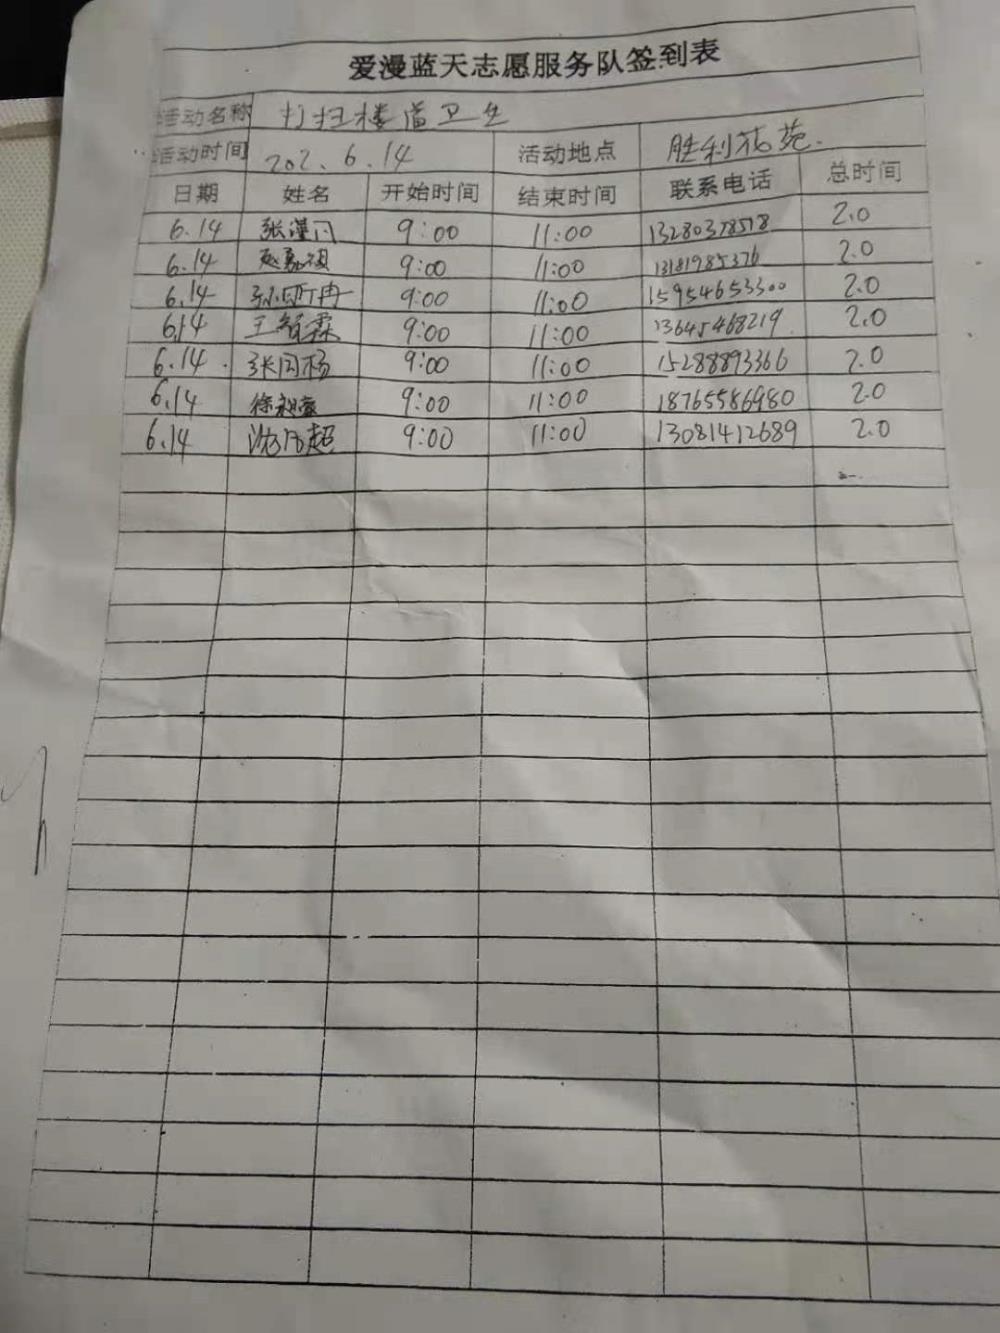 爱漫蓝天志愿服务队签到表
活动名称 打扫楼道卫生
活动时间 202.6.14 活动地点 胜利花苑.
日期 姓名 开始时间 结束时间 联系电话 总时间
6.14 9:00 11:00 13280378518 2.0
6.14 9:00 11:00 13181985376 2.0
6.14 9:00 11:00 15954653300 2.0
6.14 王 霖 9:00 11:00 13645468219 2.0
6.14 张 杨 9:00 11:00 15288893366 2.0
6.14 徐 9:00 11:00 18765586980 2.0
6.14 超 9:00 11:00 13081412689 2.0